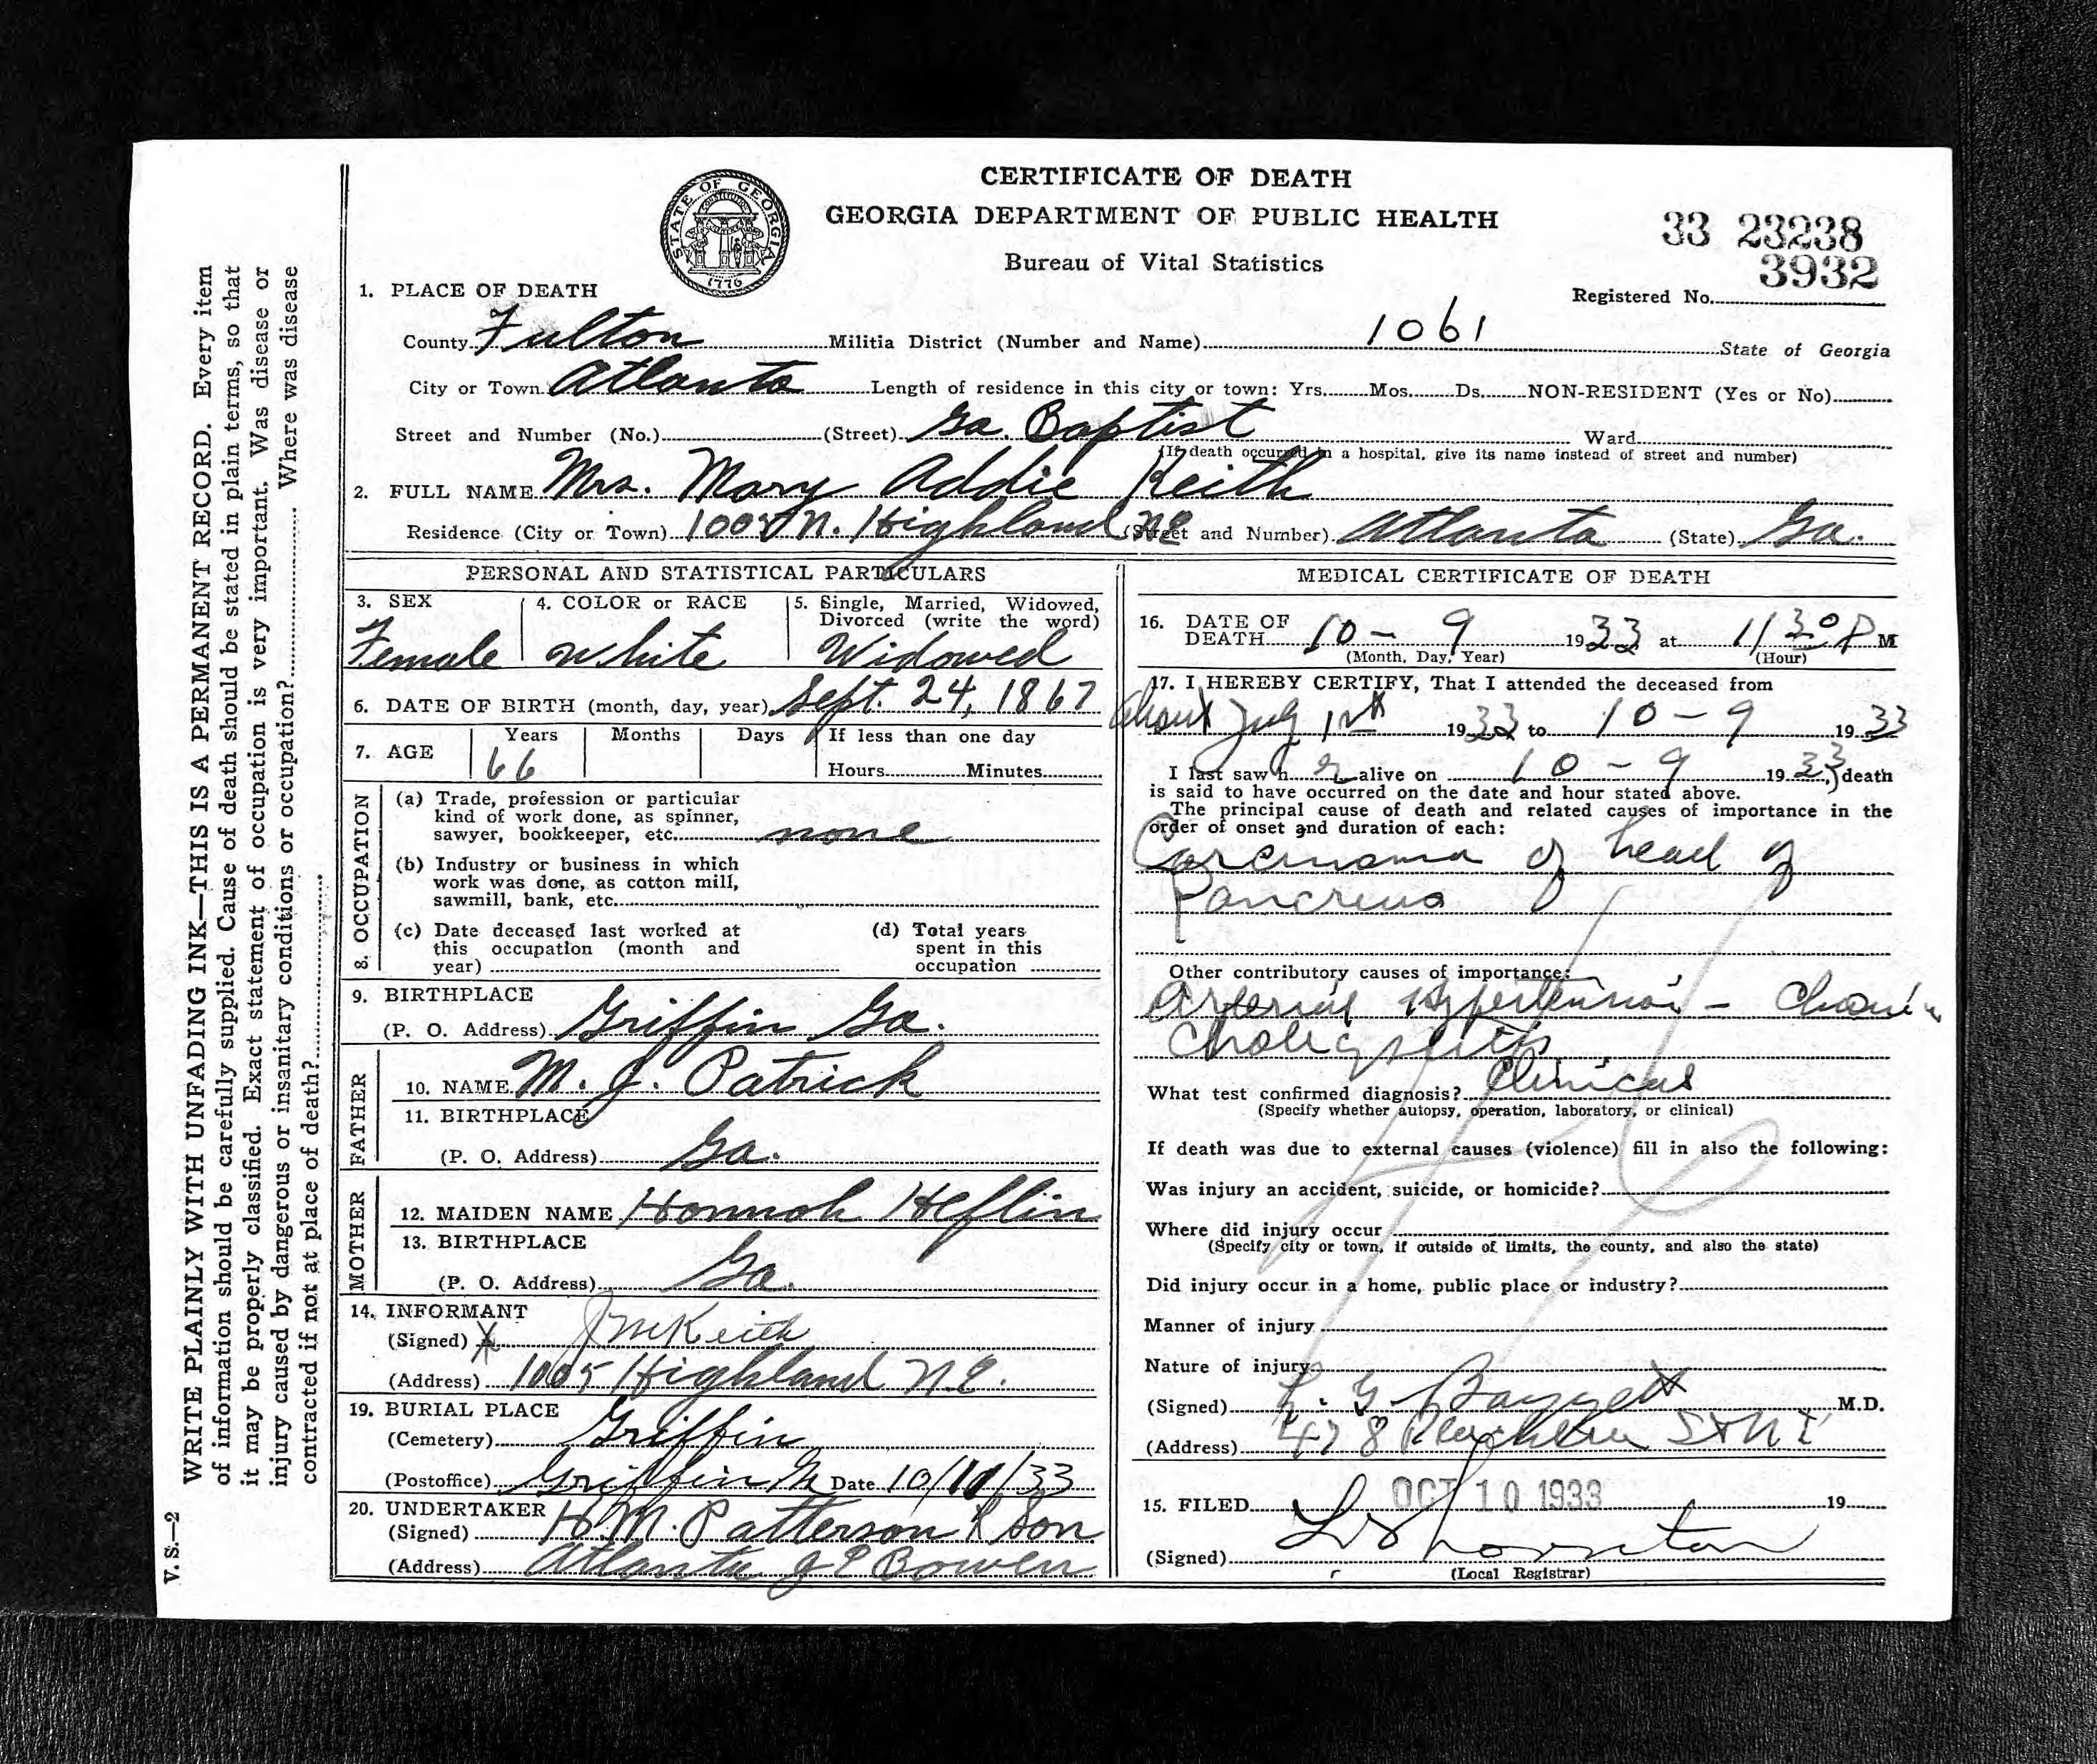 CERTIFICATE OF DEATH
GEORGIA DEPARTMENT OF PUBLIC HEALTH
Bureau of Vital Statistics
STATE OF GEORGIA
CONSTITUTION
1776
33 23238
3932
Registered No.
1. PLACE OF DEATH
County Fulton Militia District (Number and Name) 1061 State of Georgia
City or Town Atlanta Length of residence in this city or town: Yrs. Mos. Ds. NON-RESIDENT (Yes or No)
Street and Number (No.) (Street) Ga. Baptist Ward
(If death occurred in a hospital, give its name instead of street and number)
2. FULL NAME Mrs. Mary Addie Keith
Residence (City or Town) 1005 N. Highland NE (Street and Number) Atlanta (State) Ga.
PERSONAL AND STATISTICAL PARTICULARS
3. SEX Female
4. COLOR or RACE White
5. Single, Married, Widowed, Divorced (write the word) Widowed
6. DATE OF BIRTH (month, day, year) Sept. 24, 1867
7. AGE Years 66 Months Days If less than one day
Hours Minutes
8. OCCUPATION
(a) Trade, profession or particular
kind of work done, as spinner,
sawyer, bookkeeper, etc. none
(b) Industry or business in which
work was done, as cotton mill,
sawmill, bank, etc.
(c) Date deceased last worked at
this occupation (month and
year)
(d) Total years
spent in this
occupation
9. BIRTHPLACE
(P. O. Address) Griffin Ga.
FATHER
10. NAME M. J. Patrick
11. BIRTHPLACE
(P. O. Address) Ga.
MOTHER
12. MAIDEN NAME Hannah Heflin
13. BIRTHPLACE
(P. O. Address) Ga.
14. INFORMANT
(Signed) X J M Keith
(Address) 1005 Highland N.E.
19. BURIAL PLACE
(Cemetery) Griffin
(Postoffice) Griffin Ga Date 10/11/33
20. UNDERTAKER
(Signed) H. M. Patterson & Son
(Address) Atlanta J E Bowen
MEDICAL CERTIFICATE OF DEATH
16. DATE OF
DEATH 10 - 9 1933 at 11 30 P M
(Month, Day, Year) (Hour)
17. I HEREBY CERTIFY, That I attended the deceased from
About July 1st 1933 to 10 - 9 1933
I last saw h er alive on 10 - 9 1933, death
is said to have occurred on the date and hour stated above.
The principal cause of death and related causes of importance in the
order of onset and duration of each:
Carcinoma of head of
Pancreas
Other contributory causes of importance:
Arterial Hypertension - Chronic
Cholecystitis
What test confirmed diagnosis? Clinical
(Specify whether autopsy, operation, laboratory, or clinical)
If death was due to external causes (violence) fill in also the following:
Was injury an accident, suicide, or homicide?
Where did injury occur
(Specify city or town, if outside of limits, the county, and also the state)
Did injury occur in a home, public place or industry?
Manner of injury
Nature of injury
(Signed) L. G Baggett M.D.
(Address) 478 Peachtree St N E
15. FILED OCT 10 1933 19
(Signed)
(Local Registrar)
WRITE PLAINLY WITH UNFADING INK—THIS IS A PERMANENT RECORD. Every item
of information should be carefully supplied. Cause of death should be stated in plain terms, so that
it may be properly classified. Exact statement of occupation is very important. Was disease or
injury caused by dangerous or insanitary conditions or occupation? Where was disease
contracted if not at place of death?
V. S.—2